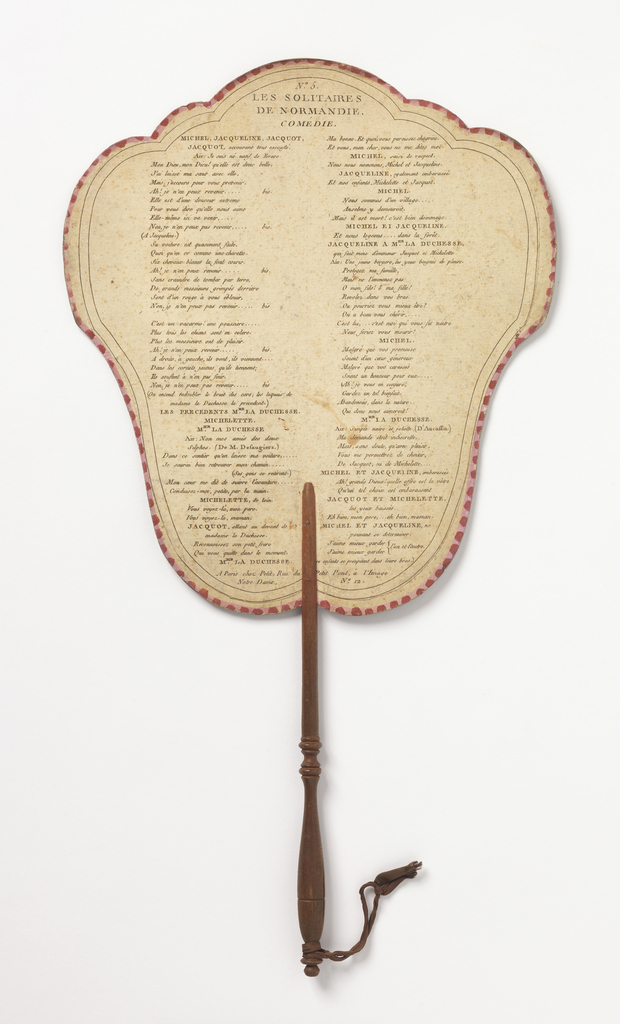 N.º 5.
LES SOLITAIRES
DE NORMANDIE,
COMEDIE.
MICHEL, JACQUELINE, JACQUOT,
JACQUOT, accourant tout essouflé.
Air: Je suis né natif de
Mon Dieu, mon Dieu! qu'elle est donc belle.
J'ai laissé ma sœur avec elle,
Mais, j'accours pour vous prévenir;
Ah! je n'en peux revenir.... bis.
Elle est d'une douceur extreme
Pour vous dire qu'elle nous aime
Elle-même ici va venir....
Non, je n'en peux pas revenir.... bis.
(A Jacqueline.)
Sa voiture est quasiment
Quoi qu'on er comme une
Six chevaux-blancs la font courir.
Ah! je n'en peux revenir.... bis.
Sans craindre de tomber par terre,
De grands messieurs grimpés derriere
Sont d'un rouge à vous éblouir,
Non, je n'en peux pas revenir. bis
C'est un vacarme! une poussiere....
Plus tous les chiens sont en colere.
Plus les messieurs ont de plaisir.
Ah! je n'en peux revenir.... bis.
A droite, à gauche, ils vont, ils viennent....
Dans les sentiers,
Ils n'en pas finir,
Non, je n'en peux pas revenir.... bis
(On entend redoubler le bruit des cors; les laquais de
madame la Duchesse la précedent.)
LES PRECEDENTS M.me LA DUCHESSE.
MICHELETTE.
M.me LA DUCHESSE
Air: Nous nos amis des deux
Silphes. (De M. Desaugiers.)
Dans ce sentier qu'on laisse ma voiture.....
Je saurai bien retrouver mon chemin.....
(Ses gens se retirent.)
Mon cœur me dit de suivre l'aventure....
Conduisez-moi, petite, par la main.
MICHELETTE, de loin.
Vous voyez-là, mon pere.
Vous voyez-là, maman.
JACQUOT, allant au devant de
madame la Duchesse.
Reconnaissez son petit frere
Qui vous quitte dans le moment.
M.me LA DUCHESSE
Ma bonne. Et quoi, vous paraissez chagrine.
Et vous, mon cher, vous ne me dites mot.
MICHEL, saisi de respect.
Nous nous nommons, Michel et Jacqueline.
JACQUELINE, également embarrassée.
Et nos enfants, Michelette et Jacquot.
MICHEL.
Nous sommes d'un village....
Anselme y demeurait.
Mais il est mort! c'est bien dommage.
MICHEL ET JACQUELINE.
Et nous logeons.... dans la forêt.
JACQUELINE A M.me LA DUCHESSE,
qui fait mine d'emmener Jacquot et Michelette.
Air: Une jeune bergere, les yeux baignés de pleurs.
Protegez ma famille,
Mais ne l'emmenez pas
O mon fils! O ma fille!
Revolez dans vos bras.
Ou pourriez vous mieux être?
On a beau vous chérir....
C'est la,... c'est nos qui vous fit naitre
Nous feriez vous mourir!
MICHEL.
Malgré que vos promesse
Soient d'un cœur généreux
Malgré que vos caresses
Soient un honneur pour eux....
Ah! je vous en conjure,
Gardez un tel bienfait.
Abandonnés, dans la nature
Qui donc nous aimerait!
M.me LA DUCHESSE.
Air: Simple naive et jolette. (D'Aucassin.)
Ma demande était indiscrete,
Mais, sans doute, qu'avec plaisir,
Vous me permettrez de choisir,
De Jacquot, ou de Michelette.
MICHEL ET JACQUELINE, embarrassés.
Ah! grands Dieux! quelle offre est la vôtre
Qu'un tel choix est embarassant
JACQUOT ET MICHELETTE,
les yeux baissés
Eh bien, mon pere, .. eh bien, maman!
MICHEL ET JACQUELINE, ne
pouvant se déterminer.
J'aime mieux garder
J'aime mieux garder } l'un et l'autre.
enfants se jettent dans leurs bras.)
A Paris chez Petit, Rue du Petit Pont, a l'Image
Notre Dame, N.º 12.